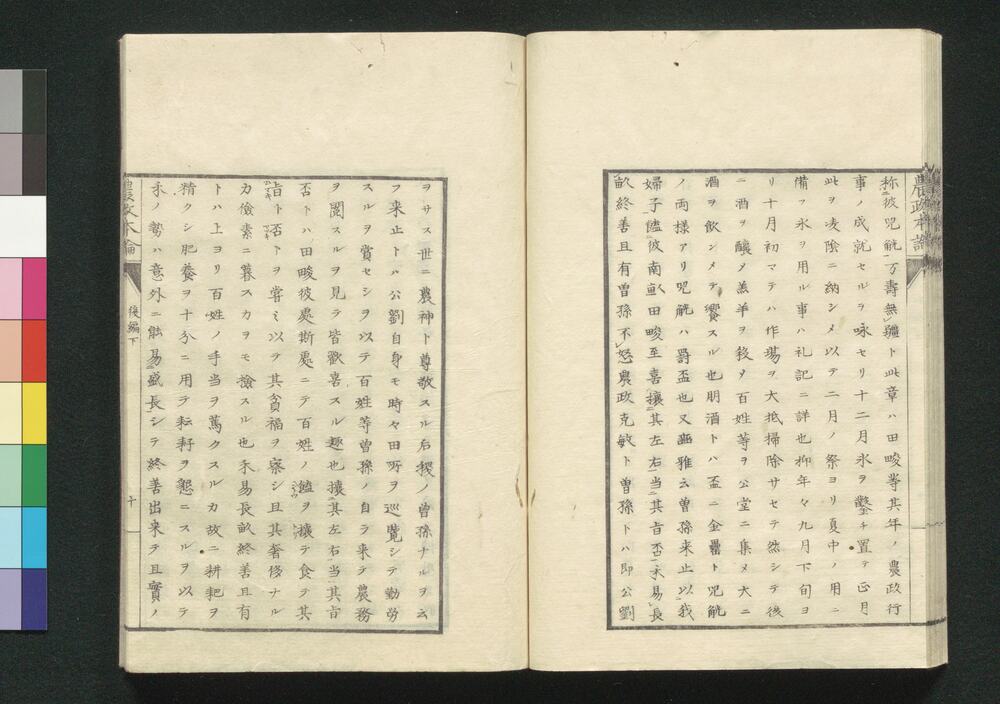 農政本論
称彼兕觥万壽無疆ト此章ハ田畯等其年ノ農政行
事ノ成就セルヲ咏セリ十二月氷ヲ鑿チ置テ正月
此ヲ凌陰ニ納シメ以テ二月ノ祭ヨリ夏中ノ用ニ
備フ氷ヲ用ル事ハ礼記ニ詳也抑年々九月下旬ヨ
リ十月初マテハ作場ヲ大抵掃除サセテ然シテ後
ニ酒ヲ釀メ羔羊ヲ殺メ百姓等ヲ公堂ニ集メ大ニ
酒ヲ飲シメテ饗スル也朋酒トハ盃ニ金罍ト兕觥
ノ両様アリ兕觥ハ爵盃也又豳雅云曽孫来止以我
婦子饁彼南畝田畯至喜攘其左右當其旨否禾易長
畝終善且有曽孫不怒農政克敏ト曽孫トハ即公劉
ヲサス世ニ農神ト尊敬スル后稷ノ曽孫ナルヲ云
フ来止トハ公劉自身モ時々田所ヲ巡覧シテ勤労
スルヲ賞セシヲ以テ百姓等曽孫ノ自ラ来テ農務
ヲ閲スルヲ見テ皆歓喜スル趣也攘其左右當其旨
否トハ田畯彼處斯處ニテ百姓ノ饁ヲ攘テ食テ其
旨ト否トヲ嘗ミ以テ其貧福ヲ察シ且其奢侈ナル
カ儉素ニ暮スカヲモ撿スル也禾易長畝終善且有
トハ上ヨリ百姓ノ手当ヲ篤クスルカ故ニ耕耙ヲ
精クシ肥養ヲ十分ニ用テ耘耔ヲ懇ニスルヲ以テ
禾ノ勢ハ意外ニ能易盛長シテ終善出来テ且實ノ
農政本論
後編下
十